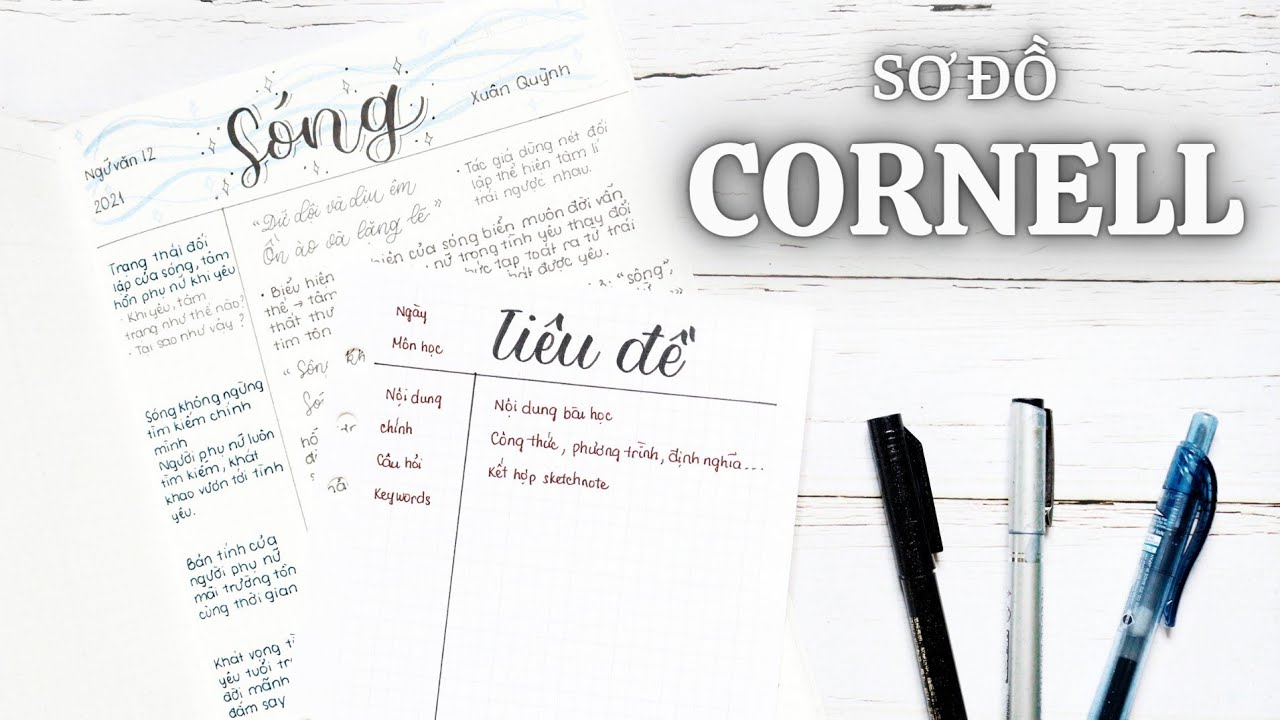 SƠ ĐỒ
CORNELL
Sóng
Xuân Quỳnh
Ngữ văn 12
2021
Trạng thái đối
lập của sóng, tâm
hồn phụ nữ khi yêu
· Khi yêu, tâm
trạng như thế nào?
· Tại sao như vậy?
Sóng không ngừng
tìm kiếm chính
mình
Người phụ nữ luôn
tìm kiếm, khát
khao vươn tới tình
yêu.
Bản tính của
người phụ nữ
mãi trường tồn
cùng thời gian
Khát vọng
tuổi
đời mãnh
đắm say
"Dữ dội và dịu êm
Ồn ào và lặng lẽ"
· Tác giả dùng nét đối
lập thể hiện tâm lí
trái ngược nhau.
· Biểu hiện của sóng biển muôn đời vẫn
thế → nữ trong tình yêu thay đổi
thất phức tạp toát ra từ trái
tìm được yêu.
"sông",
Ngày
Môn học
Tiêu đề
Nội dung
chính
Câu hỏi
Keywords
Nội dung bài học
Công thức, phương trình, định nghĩa...
Kết hợp sketchnote